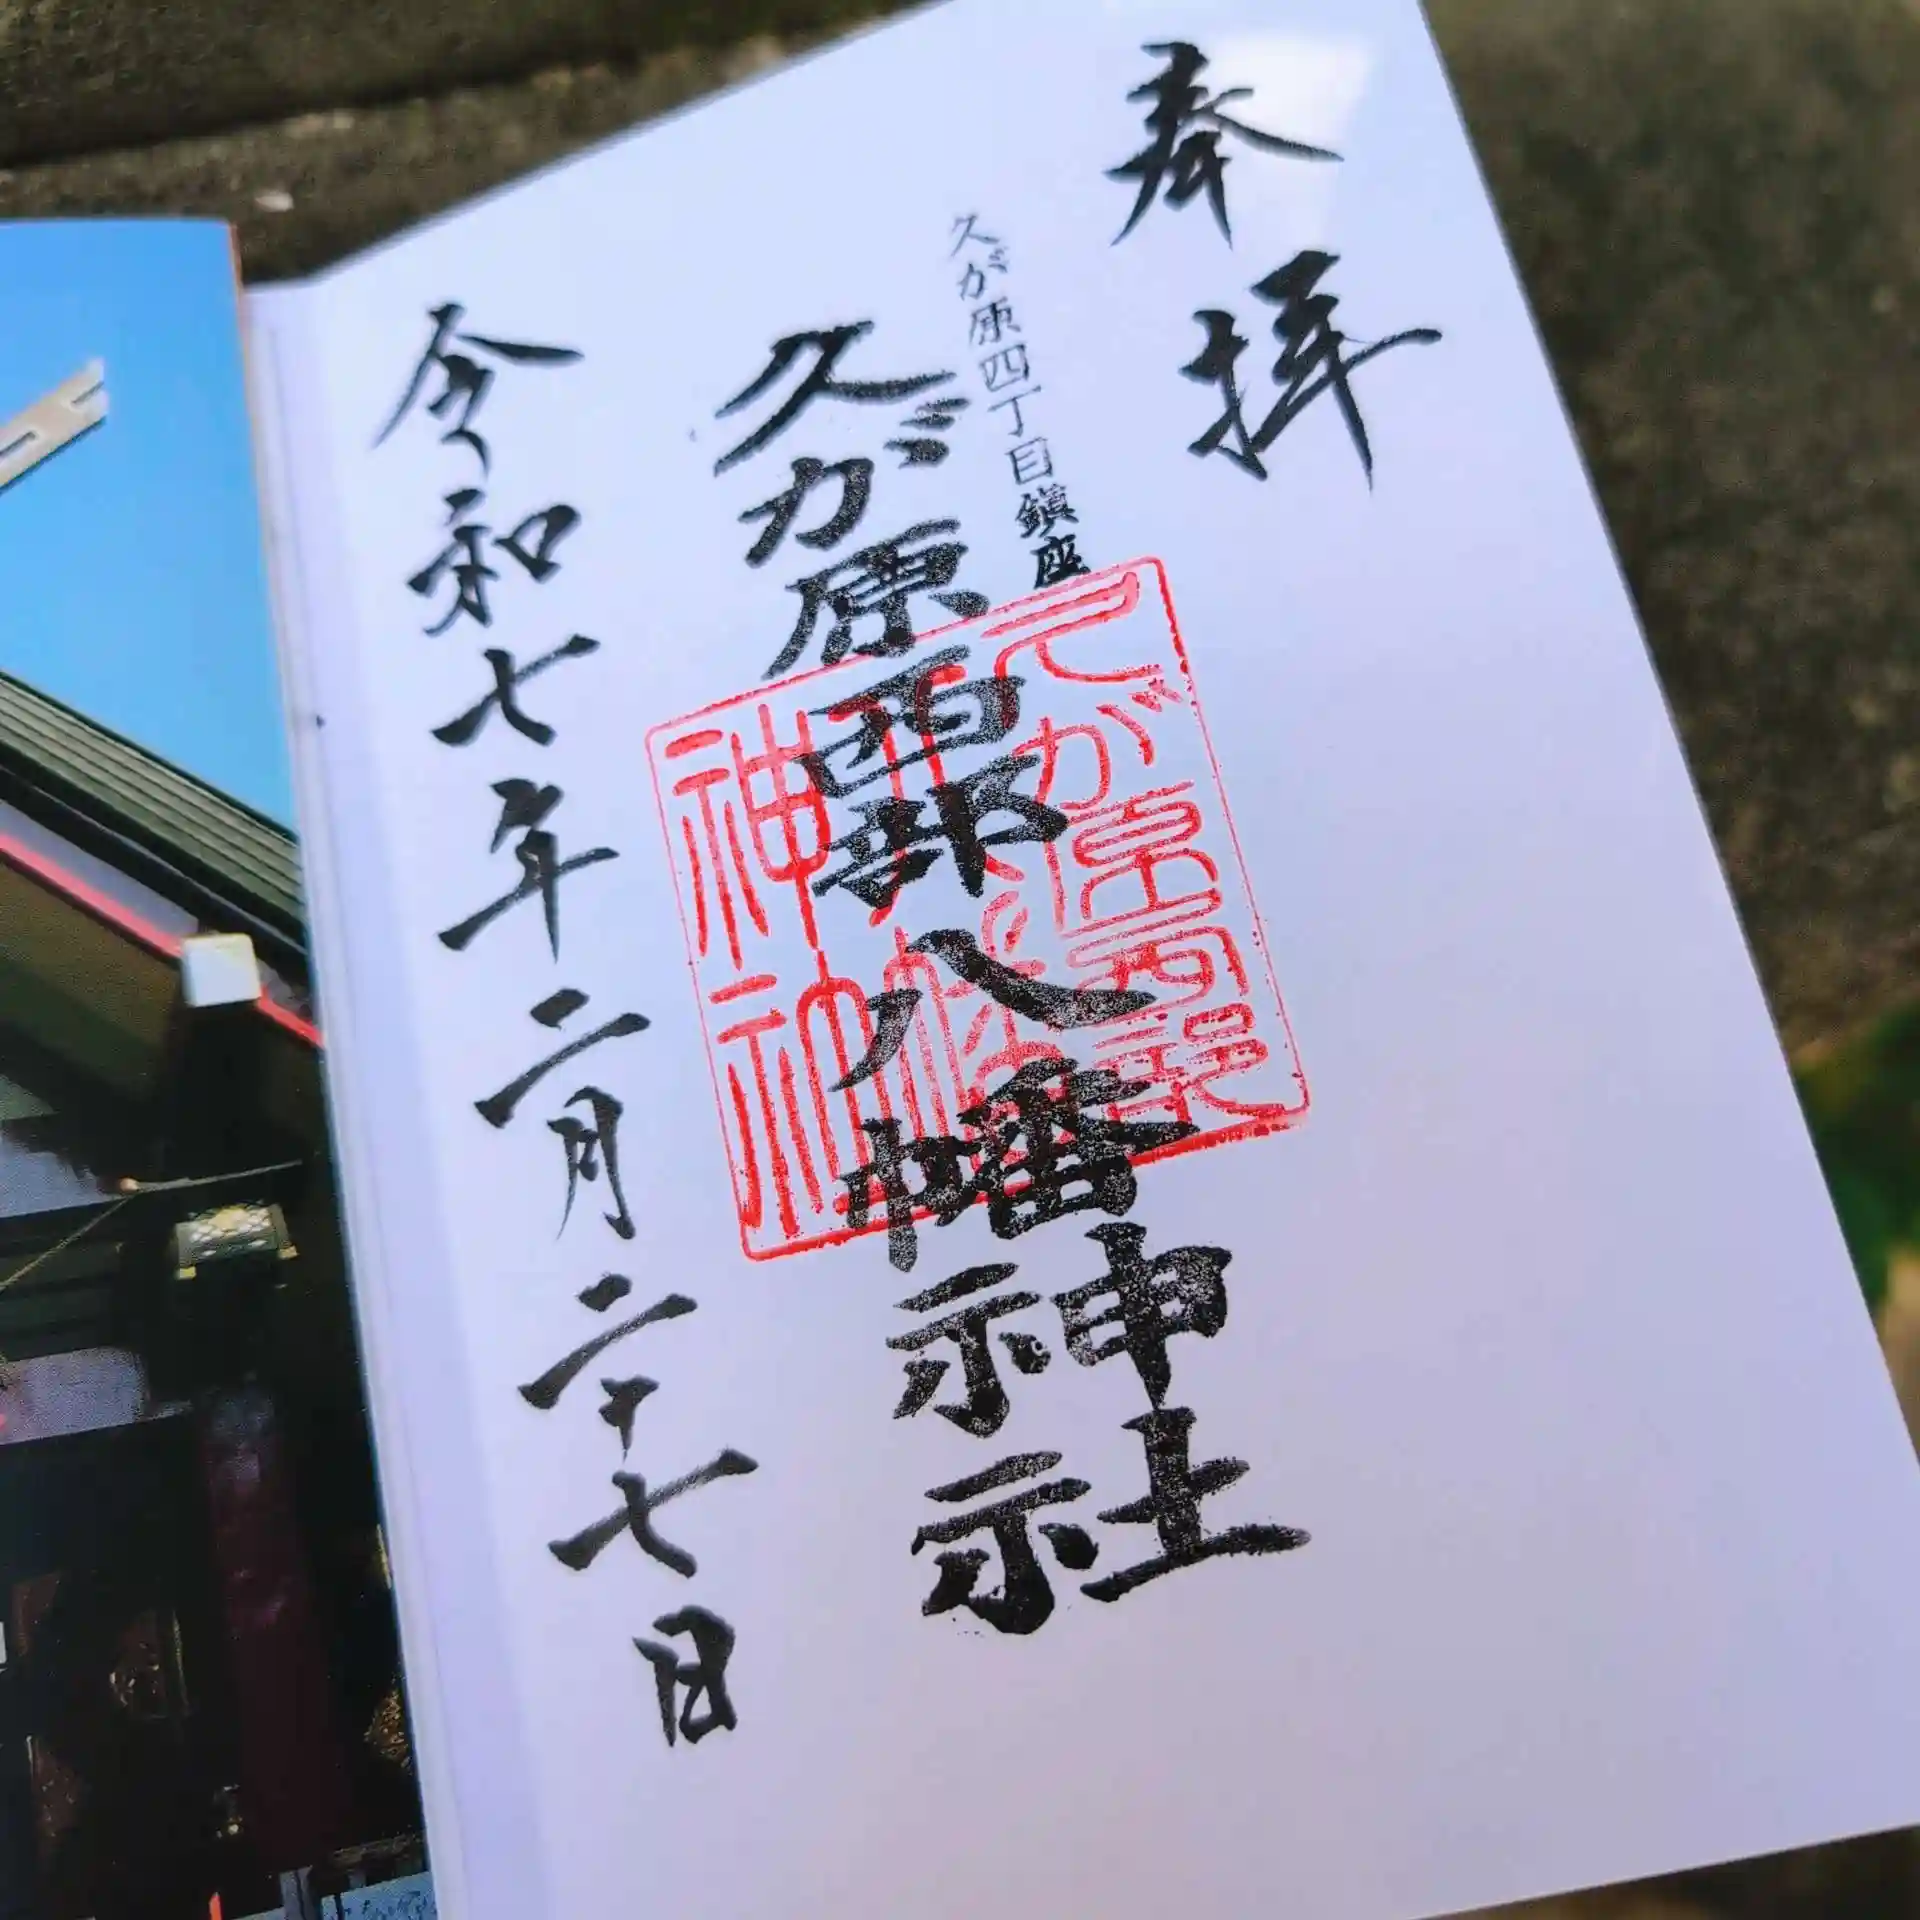 奉拝
久が原四丁目鎮座
久が原西部八幡神社
令和七年二月二十七日
久が原西部
八幡
神社